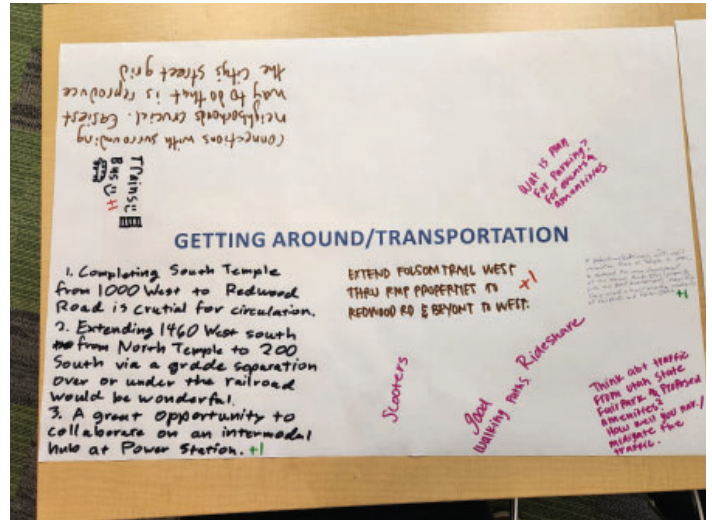 Connections with surrounding
neighborhoods crucial. Easiest
way to do that is reproduce
the city's street grid
Trains!!
Bus!!
+1
Wat is plan
for parking?
for events &
amenitives
GETTING AROUND/TRANSPORTATION
1. Completing South Temple
from 1000 West to Redwood
Road is crutial for circulation.
2. Extending 1460 West south
from North Temple to 200
South via a grade separation
over or under the railroad
would be wonderful.
3. A great opportunity to
collaborate on an intermodal
hub at Power Station. +1
EXTEND FOLSOM TRAIL WEST
THRU RMP PROPERTIES TO
REDWOOD RD & BEYONT TO WEST.
x1
+1
Scooters
good
Walking Paths
Rideshare
Think abt traffic
from Utah State
Fairpark & Proposed
amenities?
How will you
midigate the
traffic.